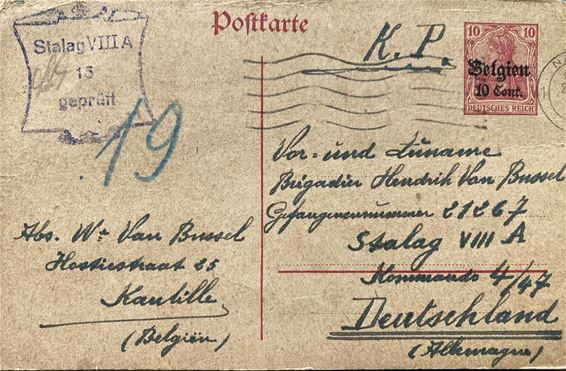 Postkarte
Stalag VIII A
15
geprüft
K.P.
10 10
Belgien
10 Cent.
DEUTSCHES REICH
19
Vor- und Zuname
Brigadier Hendrik Van Bussel
Gefangenennummer 21267
Stalag VIII A
Kommando 4/47
Deutschland
(Allemagne)
Abs. We Van Bussel
Hostiestraat 25
Kantille
(Belgiën)